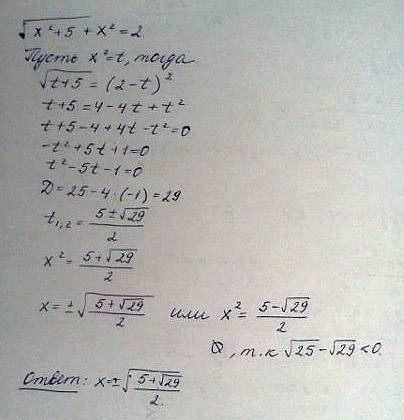 √(x²+5) + x² = 2
Пусть x²=t, тогда
√(t+5) = (2-t)²
t+5=4-4t+t²
t+5-4+4t-t²=0
-t²+5t+1=0
t²-5t-1=0
D=25-4·(-1)=29
t₁,₂= (5±√29)/2
x²= (5+√29)/2
x=±√((5+√29)/2) или x²= (5-√29)/2
∅, т.к √25-√29<0.
Ответ: x=±√((5+√29)/2).